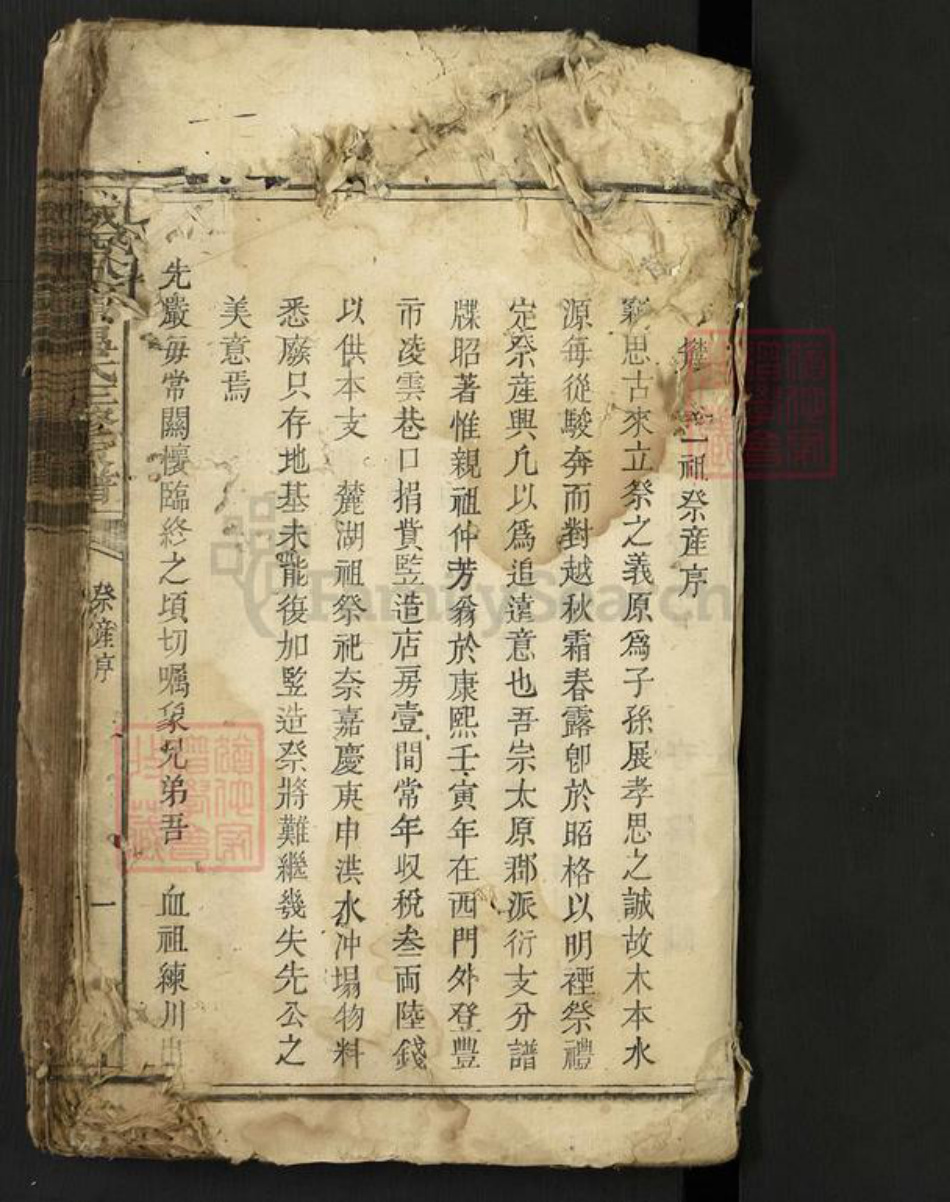 祖祭産序
竊思古來立祭之義原爲子孫展孝思之誠故木本水
源每從駿奔而對越秋霜春露卽於昭格以明禋祭禮
定祭産與凢以爲追遠意也吾宗太原郡派衍支分譜
牒昭著惟親祖仲芳翁於康熙壬寅年在西門外登豐
市凌雲巷口捐貲竪造店房壹間常年収稅叁両陸錢
以供本支 麓湖祖祭祀奈嘉慶庚申洪水冲塌物料
悉廢只存地基未能復加竪造祭將難繼幾失先公之
美意焉
先嚴毎常關懷臨終之頃切囑象兄弟吾 血祖練川出
祭産序
一
FamilySearch